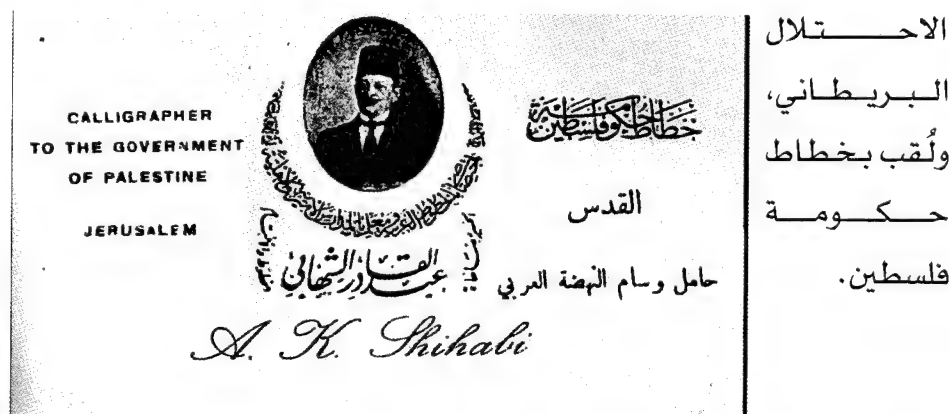 CALLIGRAPHER
TO THE GOVERNMENT
OF PALESTINE
JERUSALEM
خطاط حكومة فلسطين
القدس
حامل وسام النهضة العربي
عبد القادر الشهابي
A. K. Shihabi
الاحتلال
البريطاني،
ولُقب بخطاط
حكومة
فلسطين.